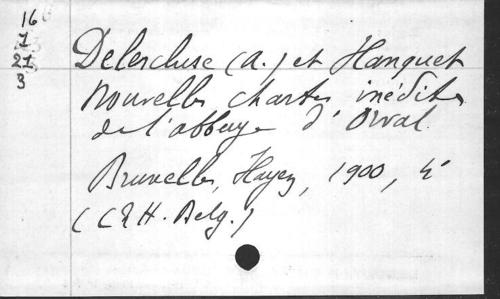 16
1
21
3
Delescluse (A.) et Hanquet
Nouvelles chartes inédites
de l'abbaye d'Orval.
Bruxelles, Hayez, 1900, 4°
(CRH. Belg.)